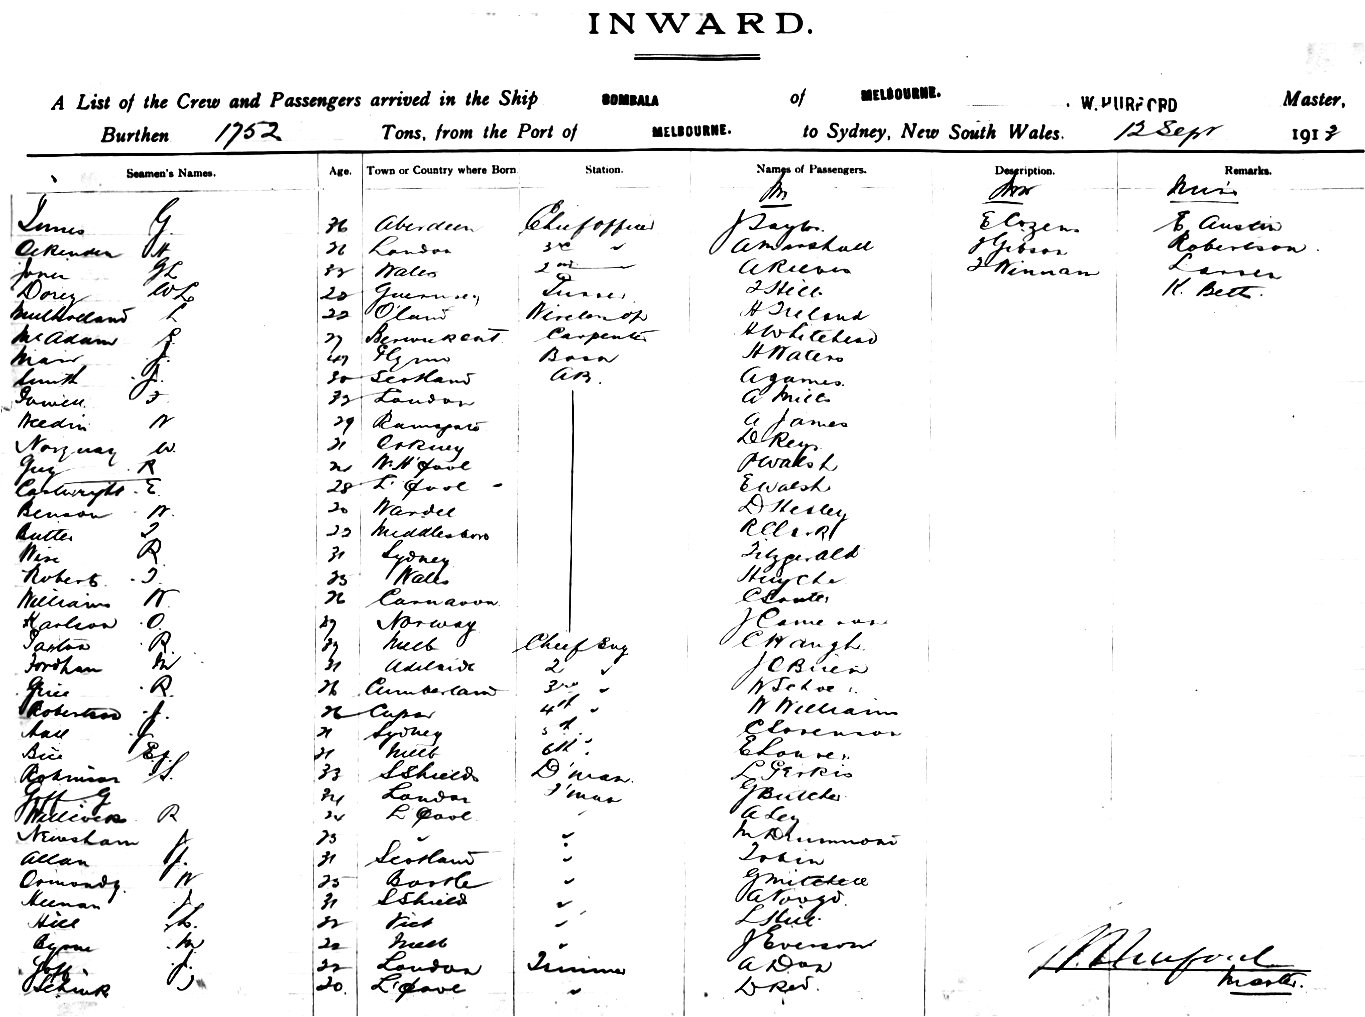 INWARD.
A List of the Crew and Passengers arrived in the Ship BOMBALA of MELBOURNE. W. HURFORD Master,
Burthen 1752 Tons, from the Port of MELBOURNE. to Sydney, New South Wales. 12 Sept 1913
Seamen's Names. Age. Town or Country where Born Station. Names of Passengers. Description. Remarks.
Mr Mrs Miss
Innes G. 36 Aberdeen Chief officer J Taylor E Cozens E Austin
Ockenden H London 3rd " A Marshall J Gibson Robertson
Jones G L 32 Wales 2nd A Reeves Winnan Larsen
Dorey W L 22 Guernsey Purser Hill K. Bett
Mulholland L 22 O'land Wireless op H Ireland
McAdam Carpenter H Whitehead
Mair J. 47 Bosn H Waters
Smith J. 30 Scotland AB. A James
Powell F 32 London A Mills
Weedin W 29 Ramsgate A James
Norquay W. 21 Orkney
Guy R W. H'pool P Walsh
Cartwright E. 28 L'pool E Walsh
Benson W. 20 D Hesley
Butter T 22 Middlesboro R Clark
Wise R 31 Sydney Fitzgerald
Robert T. 23 Wales Hughes
Williams W. 26 Carnavon C Souter
Karlson O. 39 Norway J Cameron
Paston R. 39 Melb Chief Eng C Waugh
Fordham M 31 Adelaide 2 " J O Brien
Grice R. 26 Cumberland 3rd "
Robertson J. 26 Cupar 4th " W Williams
Hall J. 21 Sydney 5th " C Sorenson
Bice 21 Melb 6th "
Robinson S. 33 S Shields D'man. L Perkis
Goff G 34 London F'man G Butcher
Willcocks R 24 L'pool " A Ley
Newsham J 23 " " M Drummond
Allan J. 31 Scotland " Tobin
Ormondy W 25 Bootle " G Mitchell
Heenan J. 31 S Shield " A Voogd.
Hill L. 32 Vict " L Hill
Byrne M 22 Melb " J Everson
J. 32 London Trimmer A Don
Schink J 20. L'pool " D Reid.
W. Hurford
Master.